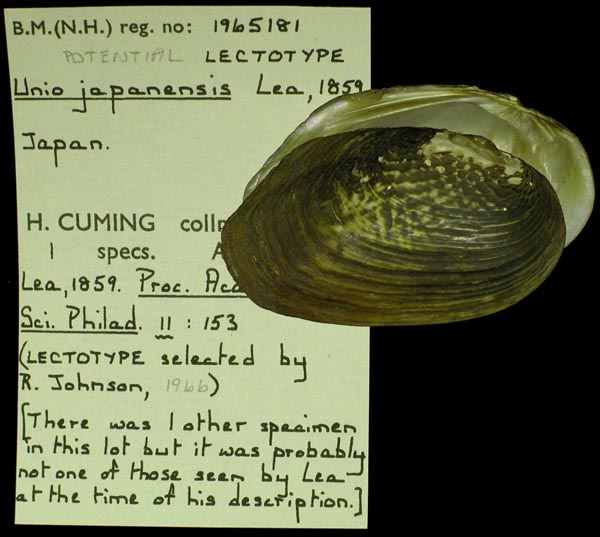 B.M.(N.H.) reg. no: 1965181
POTENTIAL LECTOTYPE
Unio japanensis Lea, 1859
Japan.
H. CUMING
1 specs.
Lea, 1859. Proc.
Sci. Philad. 11 : 153
(LECTOTYPE selected by
R. Johnson, 1966)
[There was 1 other specimen
in this lot but it was probably
not one of those seen by Lea
at the time of his description.]